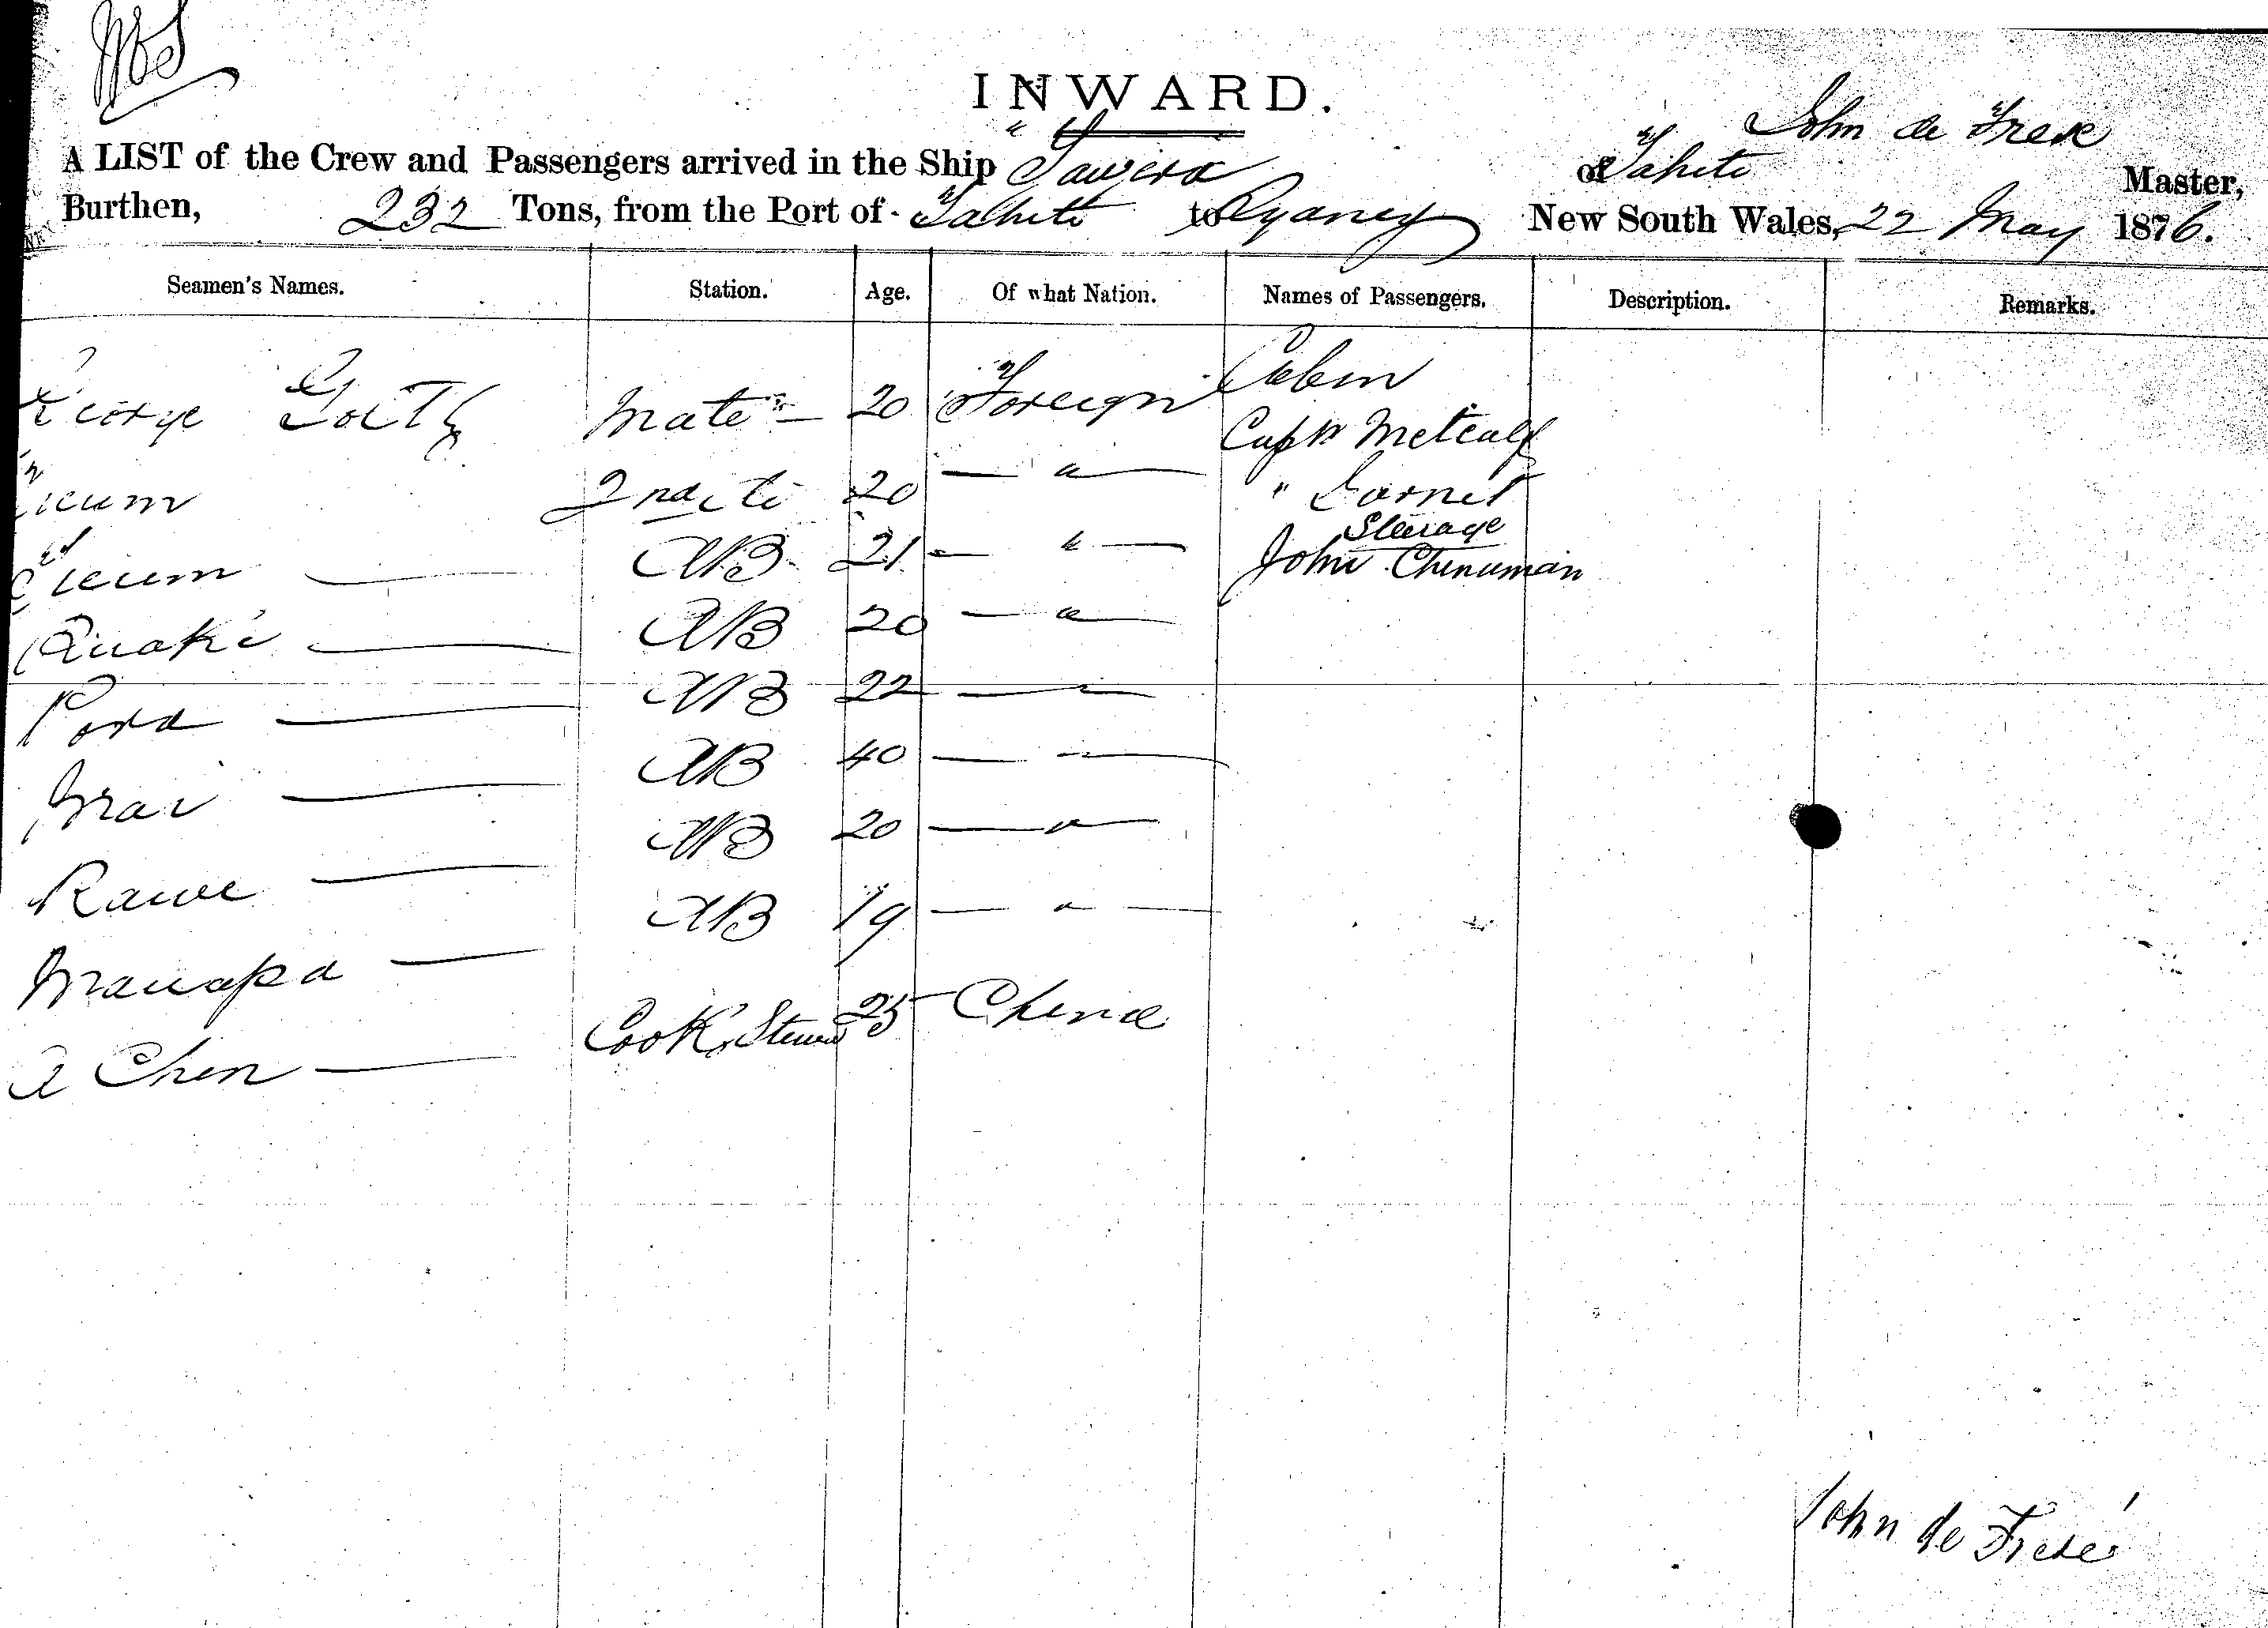 INWARD.
John de Frese
A LIST of the Crew and Passengers arrived in the Ship "Tawera of Tahiti Master,
Burthen, 232 Tons, from the Port of Tahiti to Sydney New South Wales, 22 May 1876.
Seamen's Names. Station. Age. Of what Nation. Names of Passengers. Description. Remarks.
Cabin
George Mate 20 Foreign
Capt Metcalf
2nd 20 — " —
Steerage
AB 21 — " — John Chinuman
AB 20 — " —
Pora — AB 22 — " —
Mai — AB 40 — " —
Rawe — AB 20 — " —
Manapa — AB 19 — " —
A Chen — Cook, Steward 25 China
John de Frese